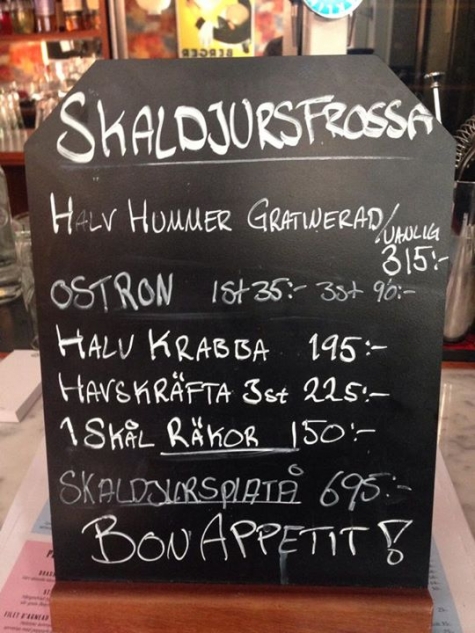 BERGER
SKALDJURSFROSSA
HALV HUMMER GRATINERAD/VANLIG
315:-
OSTRON 1st 35:- 3st 90:-
HALV KRABBA 195:-
HAVSKRÄFTA 3st 225:-
1 SKÅL RÄKOR 150:-
SKALDJURSPLATÅ 695:-
BON APPETIT!